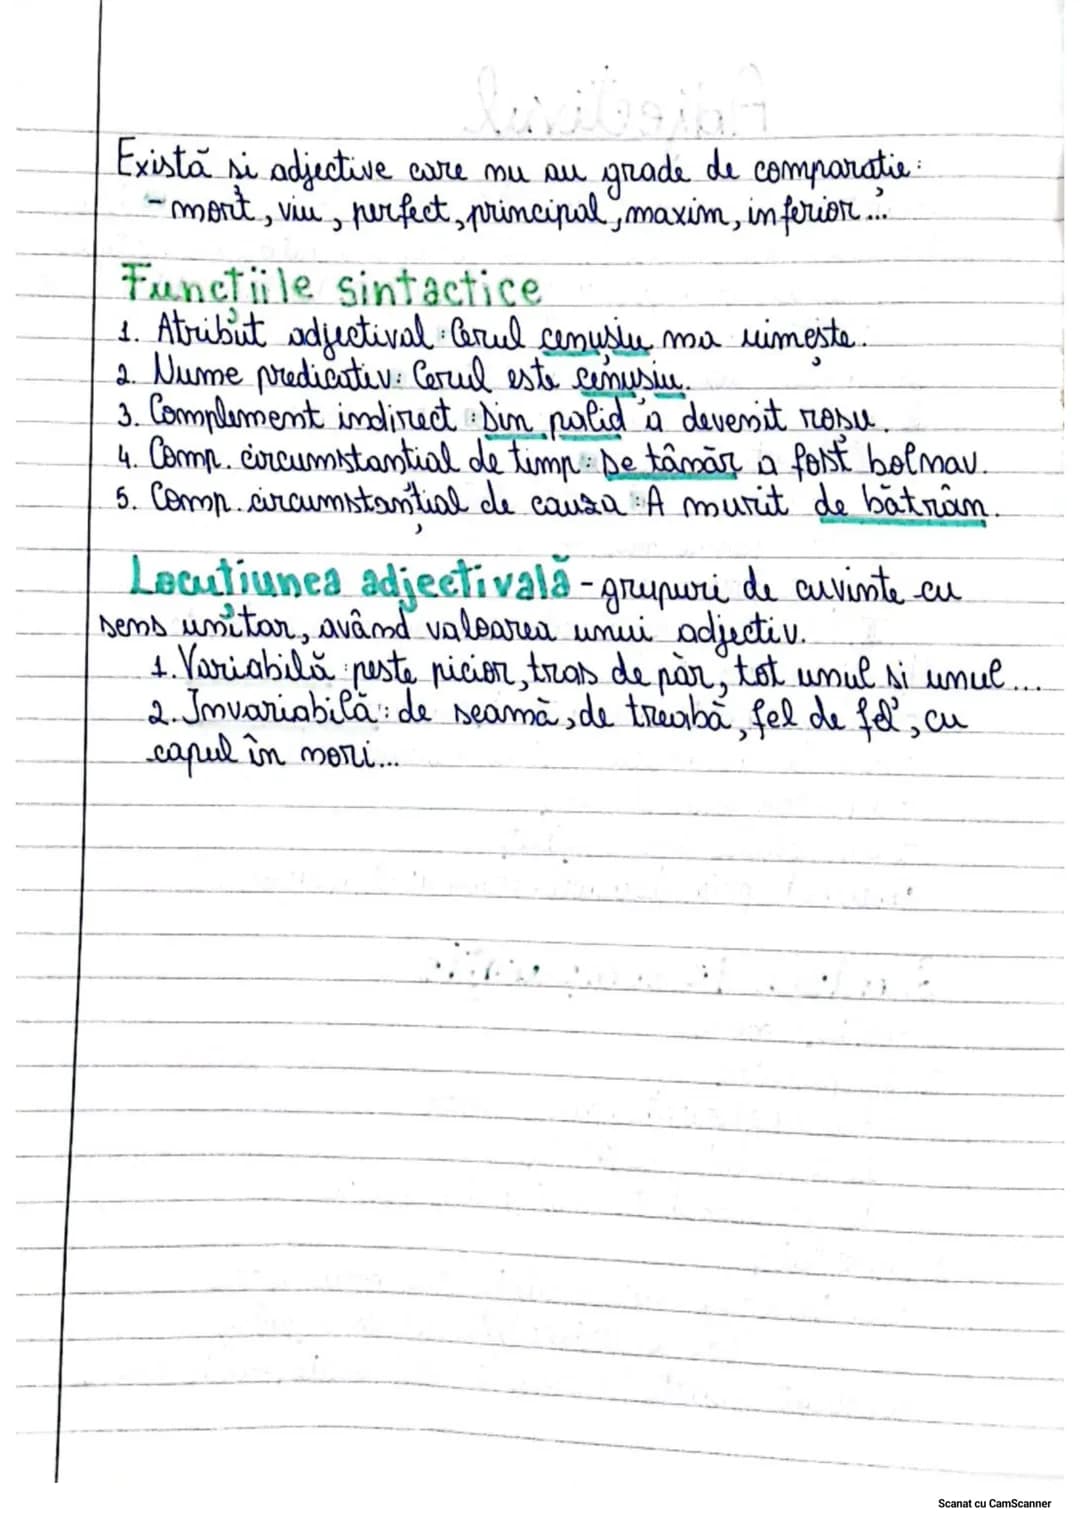 Există si adjective care nu au grade de comparație:
- mort, viu, perfect, principal, maxim, inferior...
Funcțiile sintactice
1. Atribut adjectival: Cerul cenușiu ma uimește.
2. Nume predicativ: Cerul este cenușiu.
3. Complement indirect: Din palid a devenit roșu.
4. Comp. circumstanțial de timp: De tânăr a fost bolnav.
5. Comp. circumstanțial de cauza: A murit de bătrân.
Locuțiunea adjectivală - grupuri de cuvinte cu
sens unitar, având valoarea unui adjectiv.
1. Variabilă: peste picior, tras de păr, tot unul si unul...
2. Invariabilă: de seamă, de treabă, fel de fel, cu
capul în nori...
Scanat cu CamScanner